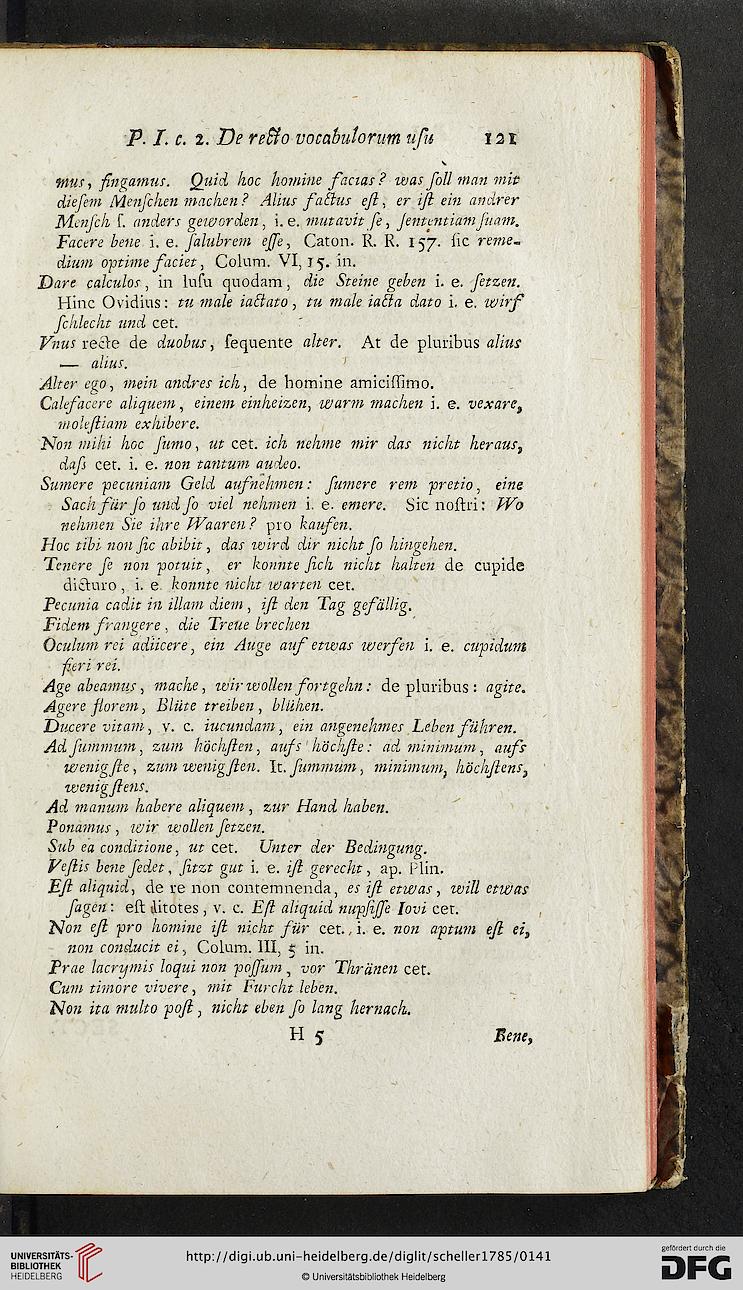 P. I. c. 2. De recto vocabulorum uſu 121
mus, fingamus. Quid hoc homine facias? was ſoll man mit
dieſem Menſchen machen? Alius factus eſt, er iſt ein andrer
Menſch ſ. anders geworden, i. e. mutavit ſe, ſententiam ſuam.
Facere bene i. e. ſalubrem eſſe, Caton. R. R. 157. ſic reme-
dium optime faciet, Colum. VI, 15. in.
Dare calculos, in luſu quodam, die Steine geben i. e. ſetzen.
Hinc Ovidius: tu male iactato, tu male iacta dato i. e. wirf
ſchlecht und cet.
Vnus recte de duobus, ſequente alter. At de pluribus alius
— alius.
Alter ego, mein andres ich, de homine amiciſſimo.
Calefacere aliquem, einem einheizen, warm machen i. e. vexare,
moleſtiam exhibere.
Non mihi hoc ſumo, ut cet. ich nehme mir das nicht heraus,
daſs cet. i. e. non tantum audeo.
Sumere pecuniam Geld aufnehmen: ſumere rem pretio, eine
Sach für ſo und ſo viel nehmen i. e. emere. Sic noſtri: Wo
nehmen Sie ihre Waaren? pro kaufen.
Hoc tibi non ſic abibit, das wird dir nicht ſo hingehen.
Tenere ſe non potuit, er konnte ſich nicht halten de cupide
dicturo, i. e. konnte nicht warten cet.
Pecunia cadit in illam diem, iſt den Tag gefällig.
Fidem frangere, die Treue brechen
Oculum rei adiicere, ein Auge auf etwas werfen i. e. cupidum
fieri rei.
Age abeamus, mache, wir wollen fortgehn: de pluribus: agite.
Agere florem, Blüte treiben, blühen.
Ducere vitam, v. c. iucundam, ein angenehmes Leben führen.
Ad ſummum, zum höchſten, aufs höchſte: ad minimum, aufs
wenigſte, zum wenigſten. It. ſummum, minimum, höchſtens,
wenigſtens.
Ad manum habere aliquem, zur Hand haben.
Ponamus, wir wollen ſetzen.
Sub ea conditione, ut cet. Unter der Bedingung.
Veſtis bene ſedet, ſitzt gut i. e. iſt gerecht, ap. Plin.
Eſt aliquid, de re non contemnenda, es iſt etwas, will etwas
ſagen: eſt litotes, v. c. Eſt aliquid nupſiſſe Iovi cet.
Non eſt pro homine iſt nicht für cet., i. e. non aptum eſt ei,
non conducit ei, Colum. III, 5 in.
Prae lacrymis loqui non poſſum, vor Thränen cet.
Cum timore vivere, mit Furcht leben.
Non ita multo poſt, nicht eben ſo lang hernach.
H 5 Bene,
UNIVERSITÄTS-
BIBLIOTHEK
HEIDELBERG
http://digi.ub.uni-heidelberg.de/diglit/scheller1785/0141
© Universitätsbibliothek Heidelberg
gefördert durch die
DFG